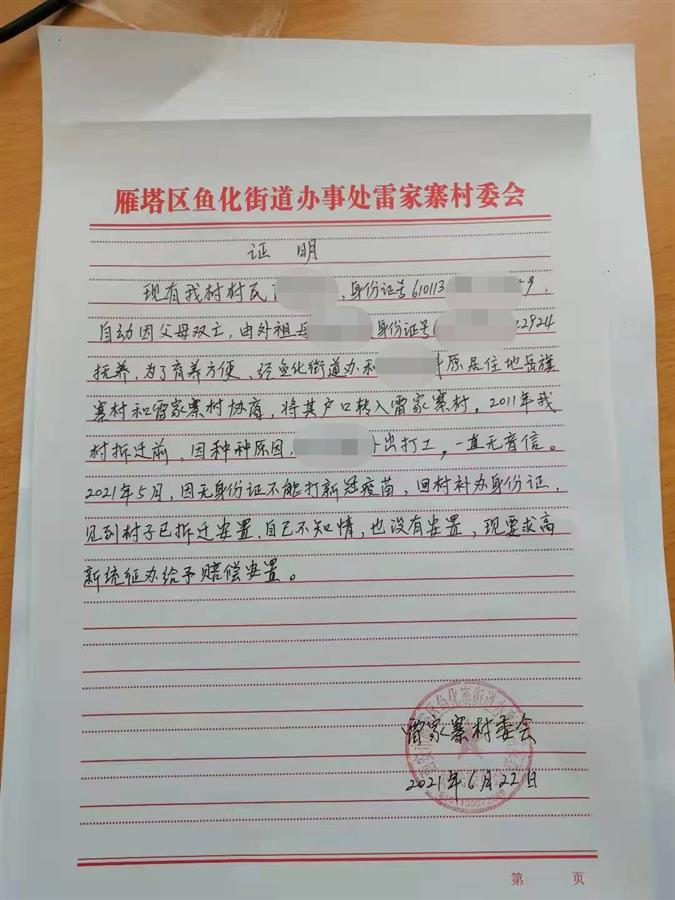 雁塔区鱼化街道办事处雷家寨村委会
证 明
现有我村村民 ,身份证号610113 9,
自动因父母双亡,由外祖母 身份证号6 2924
抚养,为了育养方便、经鱼化街道办和 原居住地岳旗
寨村和雷家寨村协商,将其户口转入雷家寨村,2011年我
村拆迁前,因种种原因, 外出打工,一直无音信。
2021年5月,因无身份证不能打新冠疫苗,回村补办身份证,
见到村子已拆迁安置,自己不知情,也没有安置,现要求高
新统征办给予赔偿安置。
雷家寨村委会
2021年6月22日
第 页